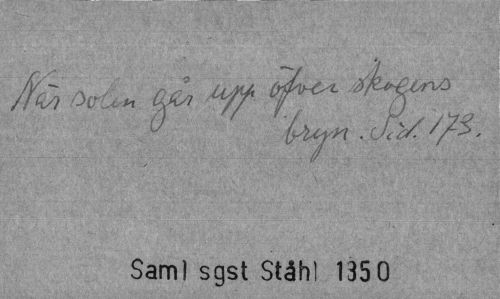 När solen går upp öfver skogens
bryn. Sid. 173.
Saml sgst Ståhl 1350